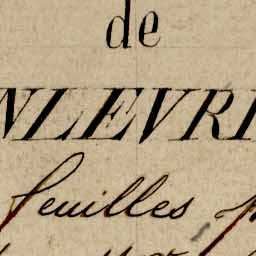 de
NLEVRI
feuilles